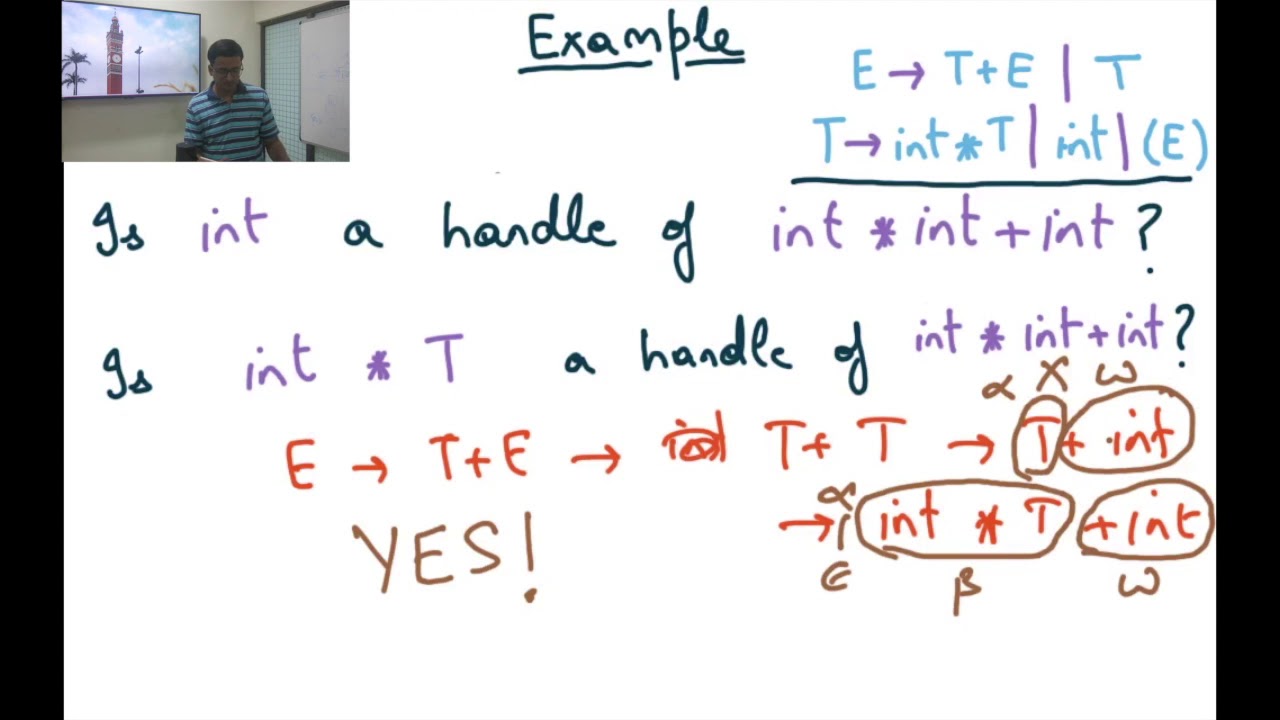 Example
E → T+E | T
T → int * T | int | (E)
Is int a handle of int * int + int ?
Is int * T a handle of int * int + int ?
α X ω
E → T+E → T+ T → T + int
α
→ int * T + int
YES!
ϵ β ω